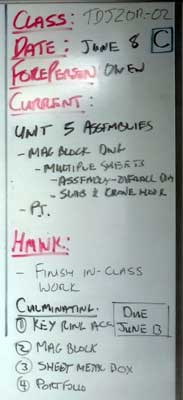 CLASS: TDJ2OR-02
DATE: JUNE 8 C
FOREPERSON OWEN
CURRENT:
UNIT 5 ASSEMBLIES
- MAG BLOCK DWG
- MULTIPLE SHEETS
- ASSEMBLY - OVERALL DIM
- SLAB & CRANE HOOK
- PJ.
HMWK:
- FINISH IN-CLASS
WORK
CULMINATING: DUE
① KEY RING ACC JUNE 13
② MAG BLOCK
③ SHEET METAL BOX
④ PORTFOLIO